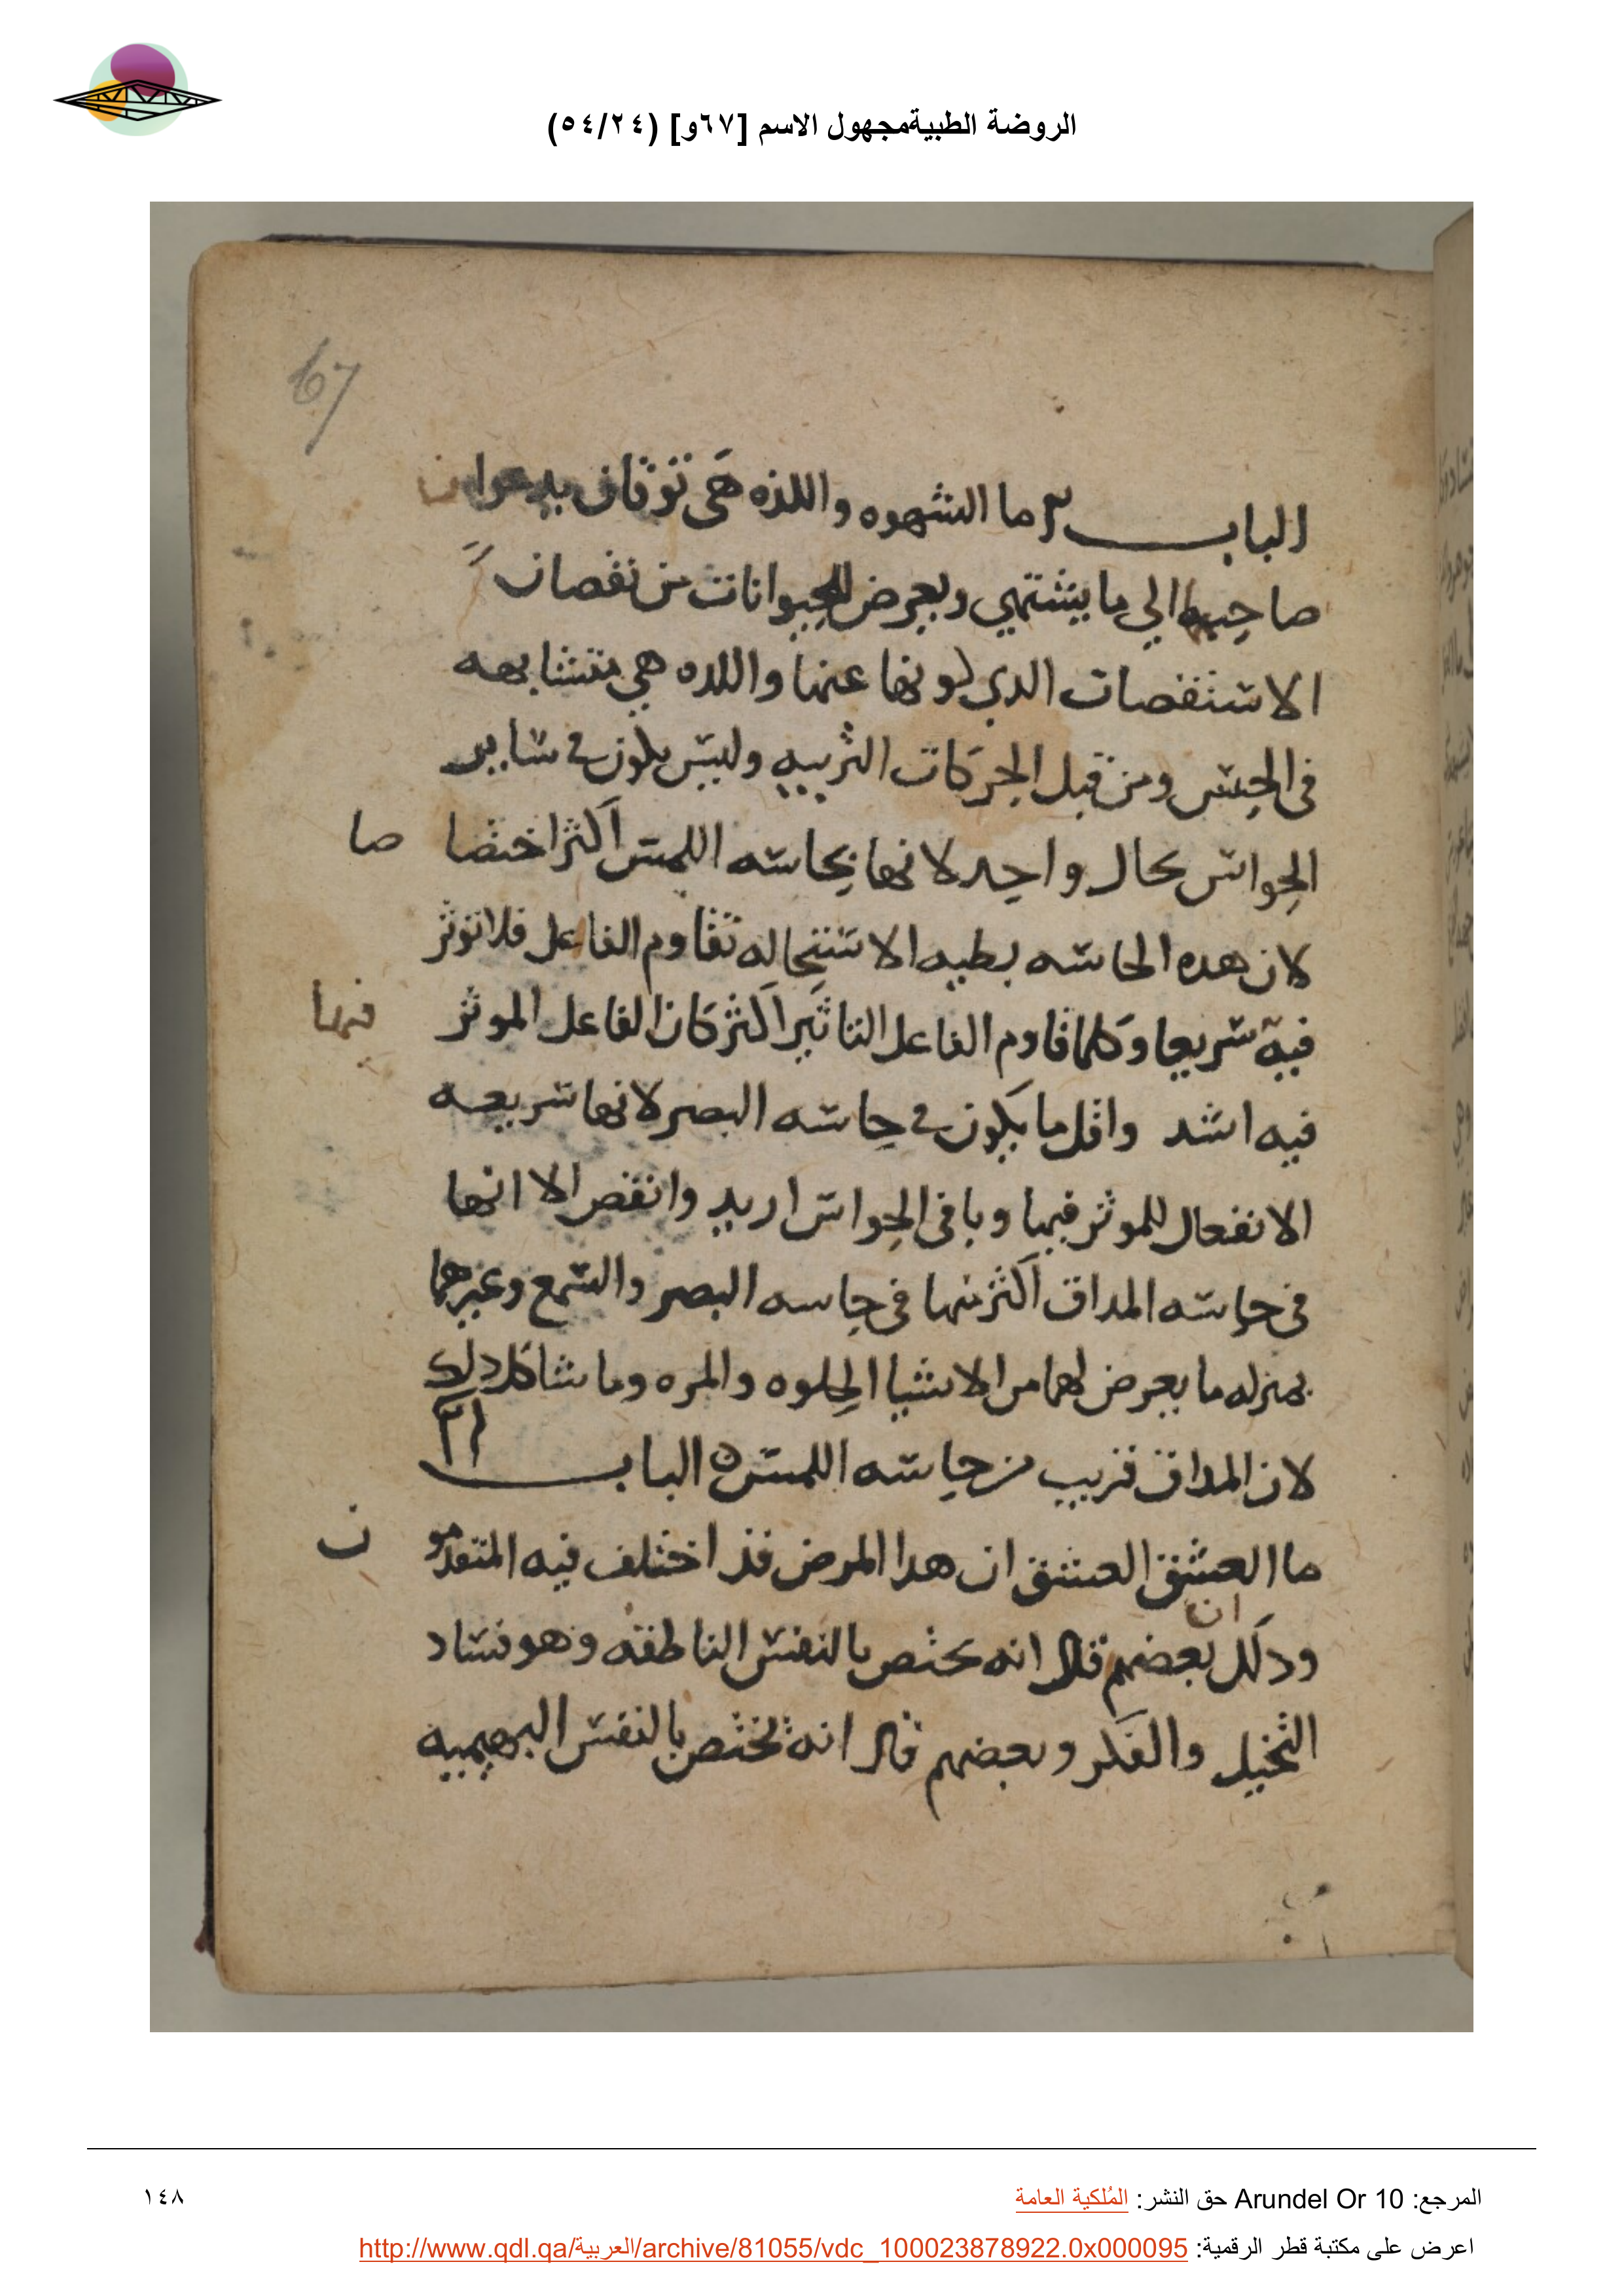 الروضة الطبيةمجهول الاسم [٦٧و] (٥٤/٢٤)
67
الباب ما الشهوه واللذه هى توقان يدعوا
صاحبها الي ما يشتهي ويعرض للحيوانات من نقصان
الاستقصات الدي كونها عنها واللده هي متشابهه
فى الحس ومن قبل الحركات التربيه وليس يكون في ساير
الحواس بحال واحد لانها بحاسه اللمس اكثر اختصا صا
لان هده الحاسه بطيه الاستحاله تقاوم الفاعل فلا توثر
فيه سريعا وكلما قاوم الفاعل التاثير اكثر كان الفاعل الموثر فيها
فيه اشد واقل ما يكون في حاسه البصر لانها سريعه
الانفعال للموثر فيها وباقى الحواس ازيد وانقص الا انها
فى حاسه المداق اكثر منها فى حاسه البصر والسمع وغيرهما
بمنزله ما يعرض لهما من الاشيا الحلوه والمره وما شاكل دلك
لان المداق قريب من حاسه اللمس ه الباب ٢١
ما العشق العشق ان هدا المرض قد اختلف فيه المتقدمو ن
ودلك ان بعضهم قال انه يختص بالنفس الناطقه وهو فساد
التخيل والفكر وبعضهم قال انه يختص بالنفس البهيميه
المرجع: Arundel Or 10 حق النشر: المُلكية العامة
١٤٨
اعرض على مكتبة قطر الرقمية: http://www.qdl.qa/العربية/archive/81055/vdc_100023878922.0x000095